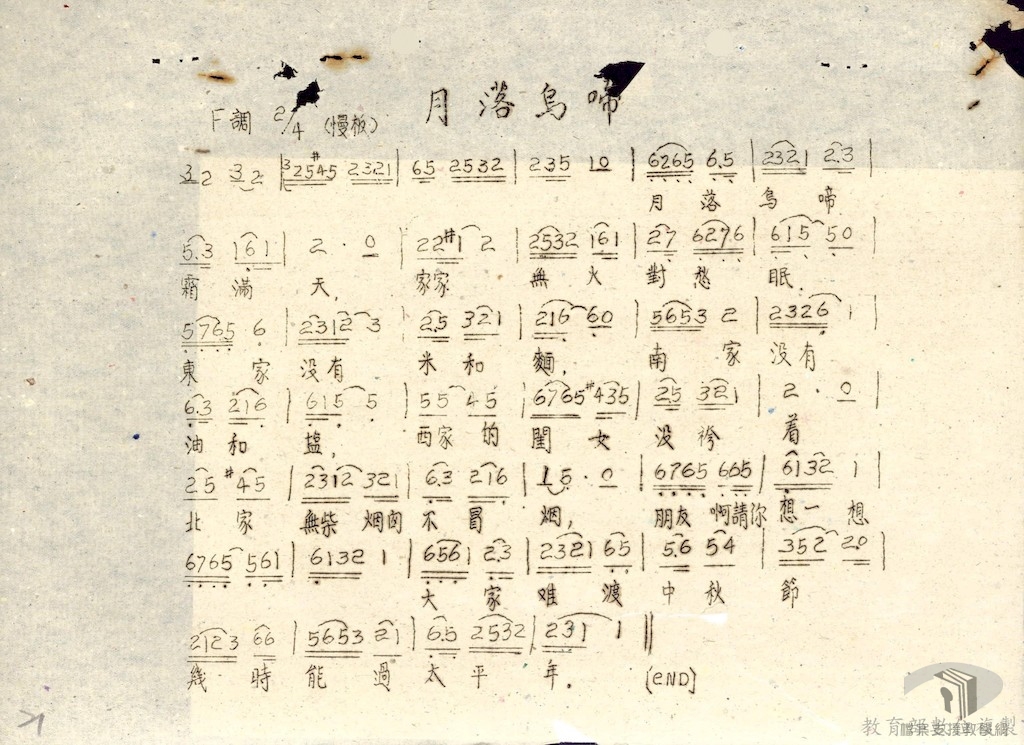 月落烏啼
F調 2/4 (慢板)
3 2 3 2 | 3 2 5 #4 5 2 3 2 1 | 6 5 2 5 3 2 | 2 3 5 1 0 | 6 2 6 5 6. 5 | 2 3 2 1 2. 3 |
月 落 烏 啼
5. 3 1 6 1 | 2 · 0 | 2 2 #1 2 | 2 5 3 2 1 6 1 | 2 7 6 2 7 6 | 6 1 5 5 0 |
霜 滿 天, 家家 無 火 對 愁 眠.
5 7 6 5 6 | 2 3 1 2 3 | 2 5 3 2 1 | 2 1 6 6 0 | 5 6 5 3 2 | 2 3 2 6 1 |
東 家 没有 米 和 麵, 南 家 没有
6. 3 2 1 6 | 6 1 5 5 | 5 5 4 5 | 6 7 6 5 #4 3 5 | 2 5 3 2 1 | 2 · 0 |
油 和 塩, 西家 的 閨 女 没 袴 着
2 5 #4 5 | 2 3 1 2 3 2 1 | 6. 3 2 1 6 | 1 5 · 0 | 6 7 6 5 6 6 5 | 6 1 3 2 1 |
北 家 無柴 烟囱 不 冒 烟, 朋友 啊請你 想一 想
6 7 6 5 5 6 1 | 6 1 3 2 1 | 6 5 6 1 2. 3 | 2 3 2 1 6 5 | 5. 6 5 4 | 3 5 2 2 0 |
大 家 难 渡 中 秋 節
2 1 2 3 6 6 | 5 6 5 3 2 1 | 6. 5 2 5 3 2 | 2 3 1 1 ‖
幾 時 能 過 太 平 年. (END)
檔案支援教學網